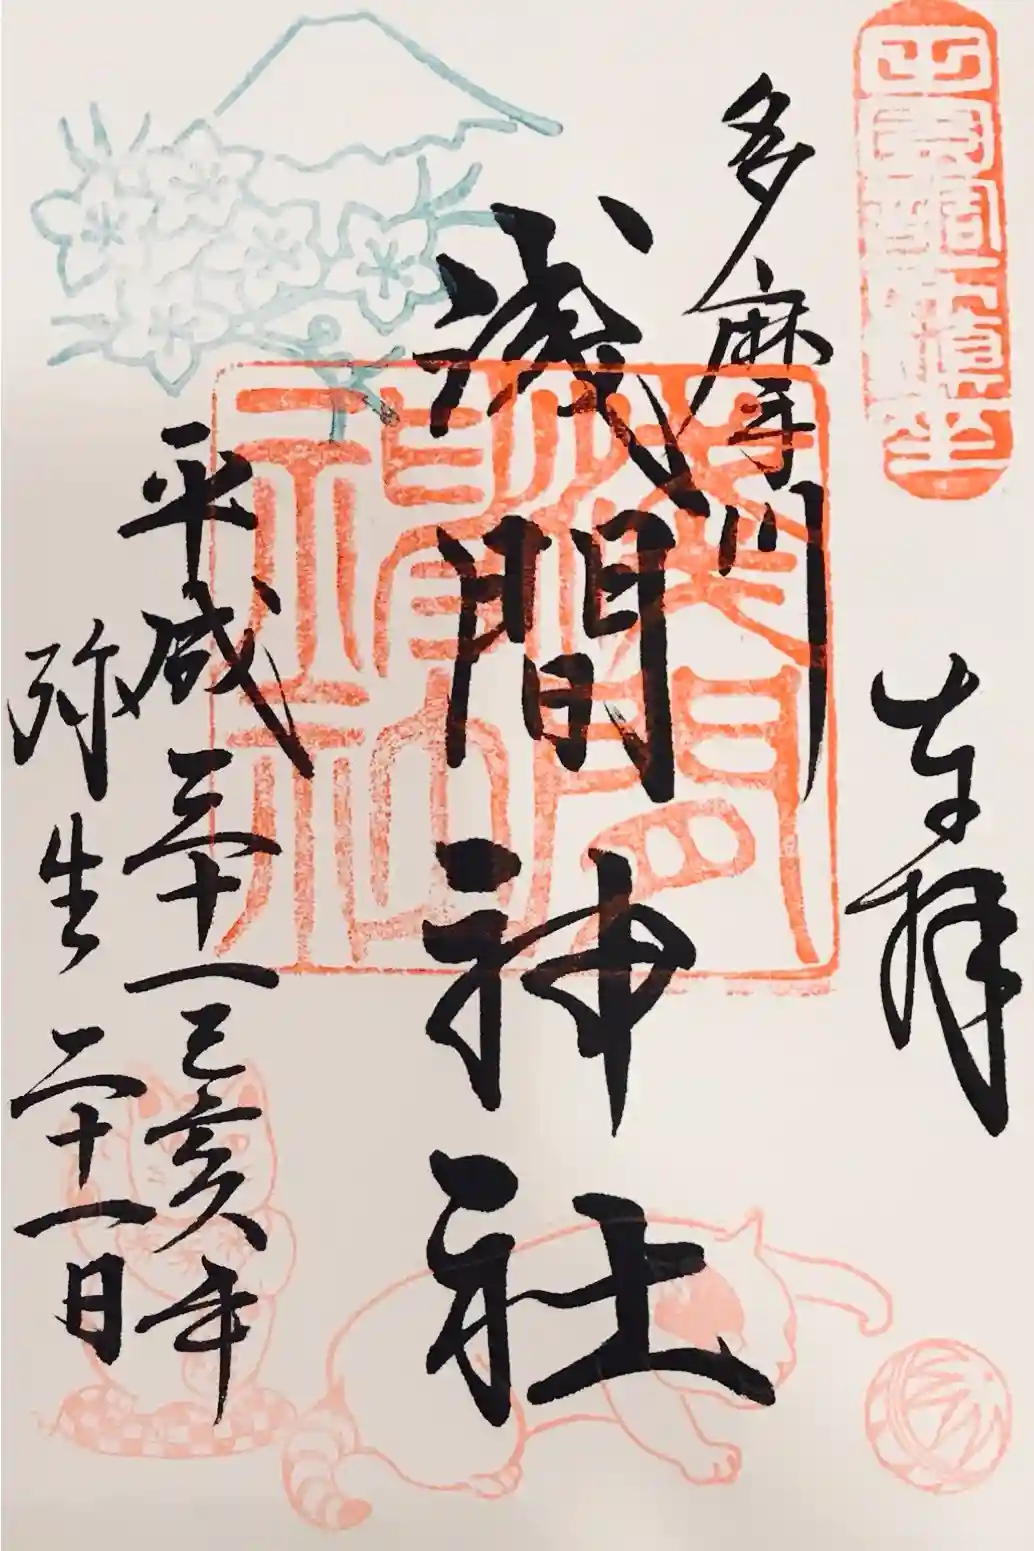 奉拝
多摩川
浅間神社
平成三十一己亥年
弥生二十一日
浅間神社